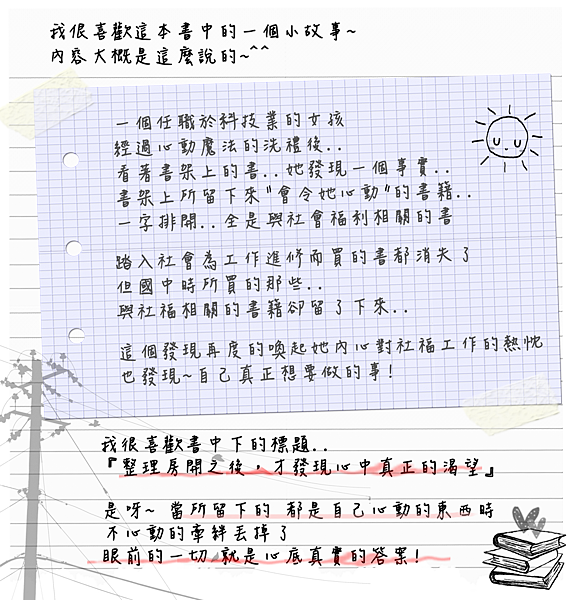 我很喜歡這本書中的一個小故事~
內容大概是這麼說的~^^
一個任職於科技業的女孩
經過心動魔法的洗禮後..
看著書架上的書..她發現一個事實..
書架上所留下來"會令她心動"的書籍..
一字排開..全是與社會福利相關的書
踏入社會為工作進修而買的書都消失了
但國中時所買的那些..
與社福相關的書籍卻留了下來..
這個發現再度的喚起她內心對社福工作的熱忱
也發現~自己真正想要做的事!
我很喜歡書中下的標題..
『整理房間之後,才發現心中真正的渴望』
是呀~ 當所留下的 都是自己心動的東西時
不心動的牽絆丟掉了
眼前的一切 就是心底真實的答案!